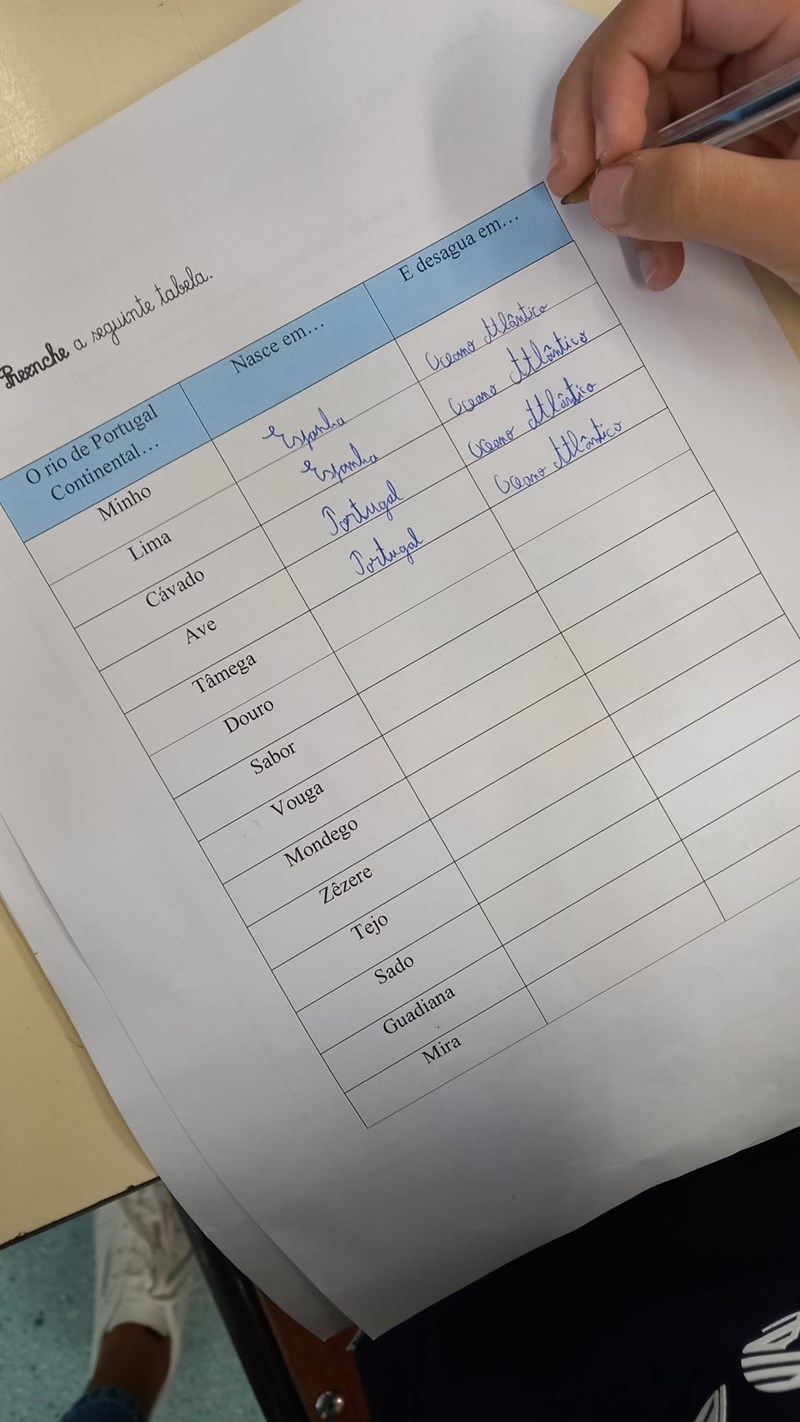 Preenche a seguinte tabela.
O rio de Portugal Continental… Nasce em… E desagua em…
Minho Espanha Oceano Atlântico
Lima Espanha Oceano Atlântico
Cávado Portugal Oceano Atlântico
Ave Portugal Oceano Atlântico
Tâmega
Douro
Sabor
Vouga
Mondego
Zêzere
Tejo
Sado
Guadiana
Mira